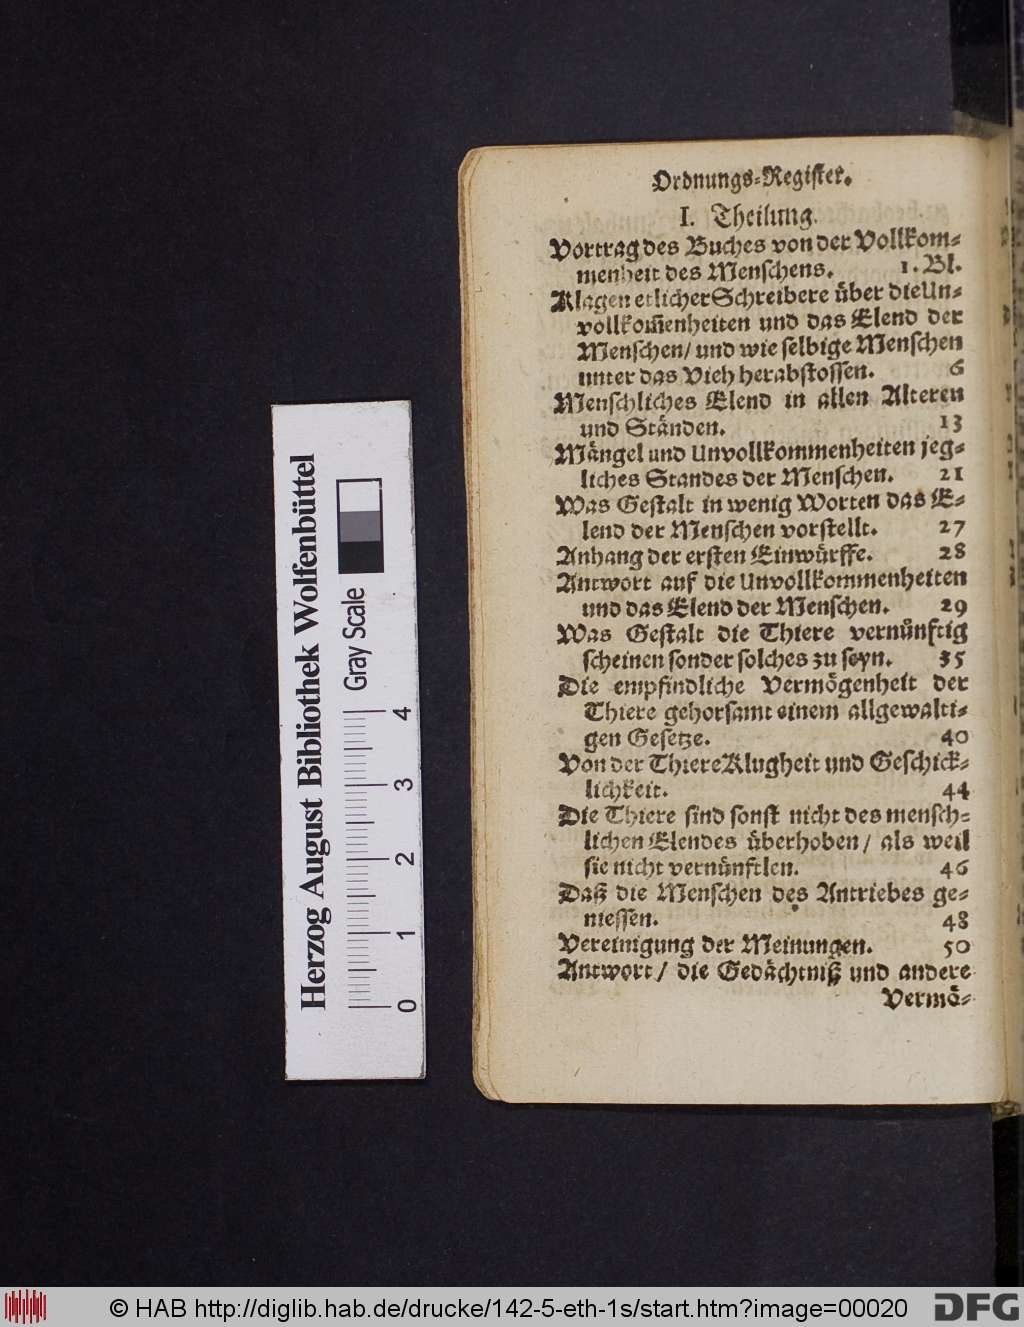 Ordnungs-Register.
I. Theilung.
Vortrag des Buches von der Vollkom-
menheit des Menschens. 1. Bl.
Klagen etlicher Schreibere über die Un-
vollkom̃enheiten und das Elend der
Menschen/ und wie selbige Menschen
unter das Vieh herabstossen. 6
Menschliches Elend in allen Alteren
und Ständen. 13
Mängel und Unvollkommenheiten jeg-
liches Standes der Menschen. 21
Was Gestalt in wenig Worten das E-
lend der Menschen vorstellt. 27
Anhang der ersten Einwürffe. 28
Antwort auf die Unvollkommenheiten
und das Elend der Menschen. 29
Was Gestalt die Thiere vernünftig
scheinen sonder solches zu seyn. 35
Die empfindliche Vermögenheit der
Thiere gehorsamt einem allgewalti-
gen Gesetze. 40
Von der Thiere Klugheit und Geschick-
lichkeit. 44
Die Thiere sind sonst nicht des mensch-
lichen Elendes überhoben/ als weil
sie nicht vernünftlen. 46
Daß die Menschen des Antriebes ge-
niessen. 48
Vereinigung der Meinungen. 50
Antwort/ die Gedächtniß und andere
Vermö-
Herzog August Bibliothek Wolfenbüttel
Gray Scale
0 1 2 3 4
© HAB http://diglib.hab.de/drucke/142-5-eth-1s/start.htm?image=00020
DFG